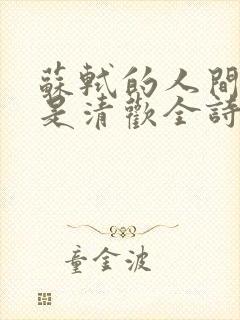 蘇軾的人間
是清歡全詩
童金波